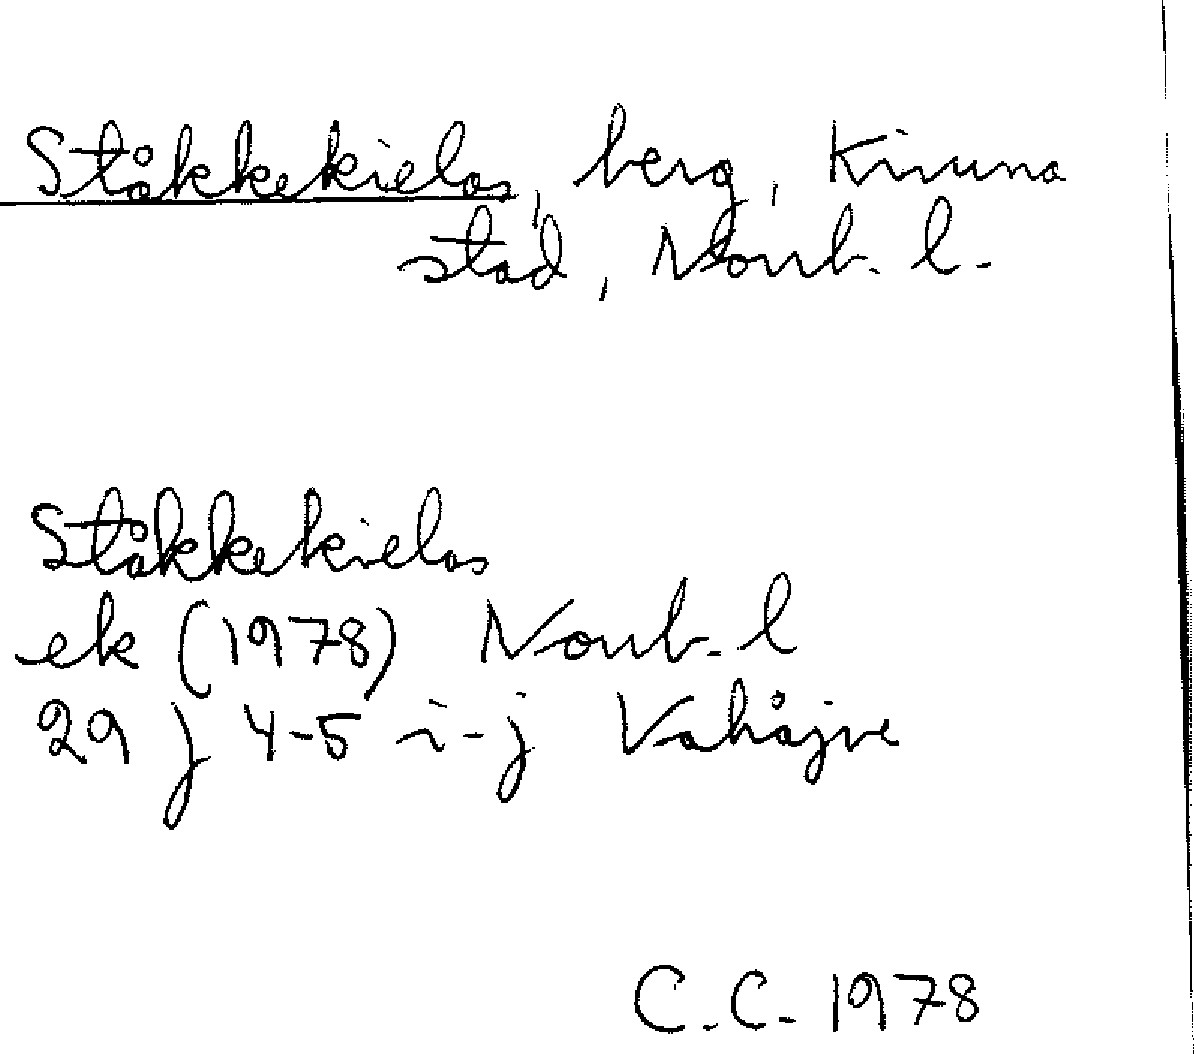 Ståkkekielas, berg, Kiruna
stad, Norrb. l.
Ståkkekielas
ek (1978) Norrb. l
29 J 4-5 i-j Vahåjve
C.C. 1978